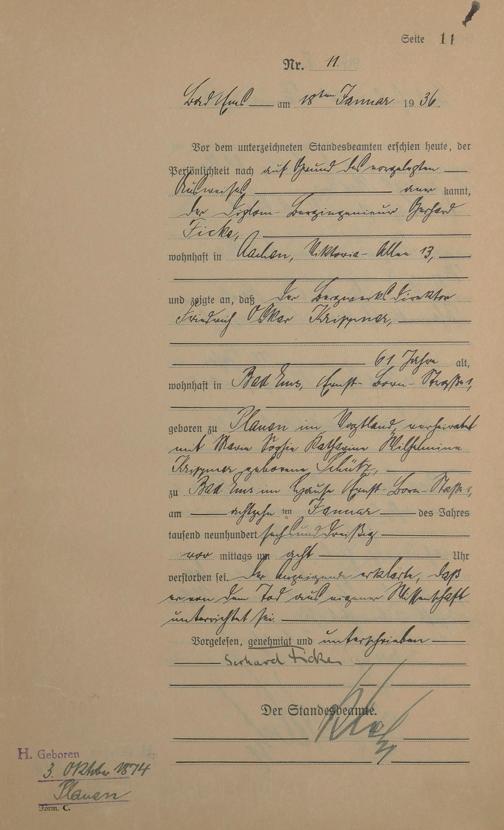 Seite 11
Nr. 11.
Bad Ems am 18ten Januar 1936.
Vor dem unterzeichneten Standesbeamten erschien heute, der
Persönlichkeit nach auf Grund des vorgelegten
Ausweises anerkannt,
der Diplom-Bergingenieur Gerhard
Ficke,
wohnhaft in Aachen, Viktoria-Allee 13,
und zeigte an, daß der Bergwerksdirektor
Friedrich Oskar Krippner,
61 Jahre alt,
wohnhaft in Bad Ems, Ernst-Born-Straße,
geboren zu Plauen im Vogtland, verheiratet
mit Maria Sophie Katharine Wilhelmine
Krippner geborene Schütz,
zu Bad Ems im Hause Ernst-Born-Straße,
am achtzehn ten Januar des Jahres
tausend neunhundert sechsunddreißig
vor mittags um acht Uhr
verstorben sei. Der Anzeigende erklärte, daß
er von dem Tod aus eigener Wissenschaft
unterrichtet sei.
Vorgelesen, genehmigt und unterschrieben
Gerhard Ficke
Der Standesbeamte.
H. Geboren
3. Oktober 1874
Plauen
Form. C.